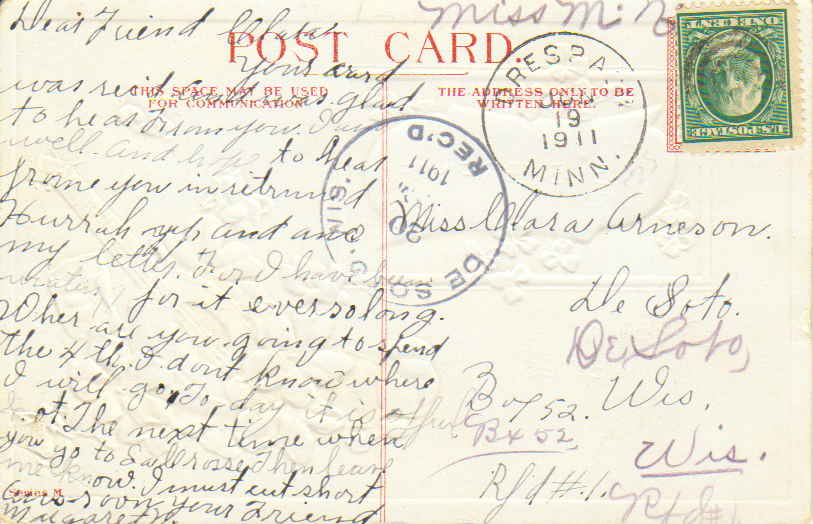 Dear Friend Clara
Your card
was recived. was glad
to hear From you. I am
well and hope to hear
frome you in return
Hurrah up and ans
my letter. For I have been
waiting for it ever so long.
Wher are you going to spend
the 4th. I dont know where
I will go. To day it is
hot. The next time when
you go to Then leave
me know. I must cut short
Ans soon your Friend
Margareth
POST CARD.
THIS SPACE MAY BE USED
FOR COMMUNICATION
THE ADDRESS ONLY TO BE
WRITTEN HERE.
Series M
Miss M.
19
1911
MINN.
U.S. POSTAGE
ONE CENT
DE SOTO
WIS.
REC'D
20
1911
Miss Clara Arneson.
De Soto.
De Soto,
Box 52. Wis.
Bx 52
Wis.
Rfd #.1.
Rfd #1